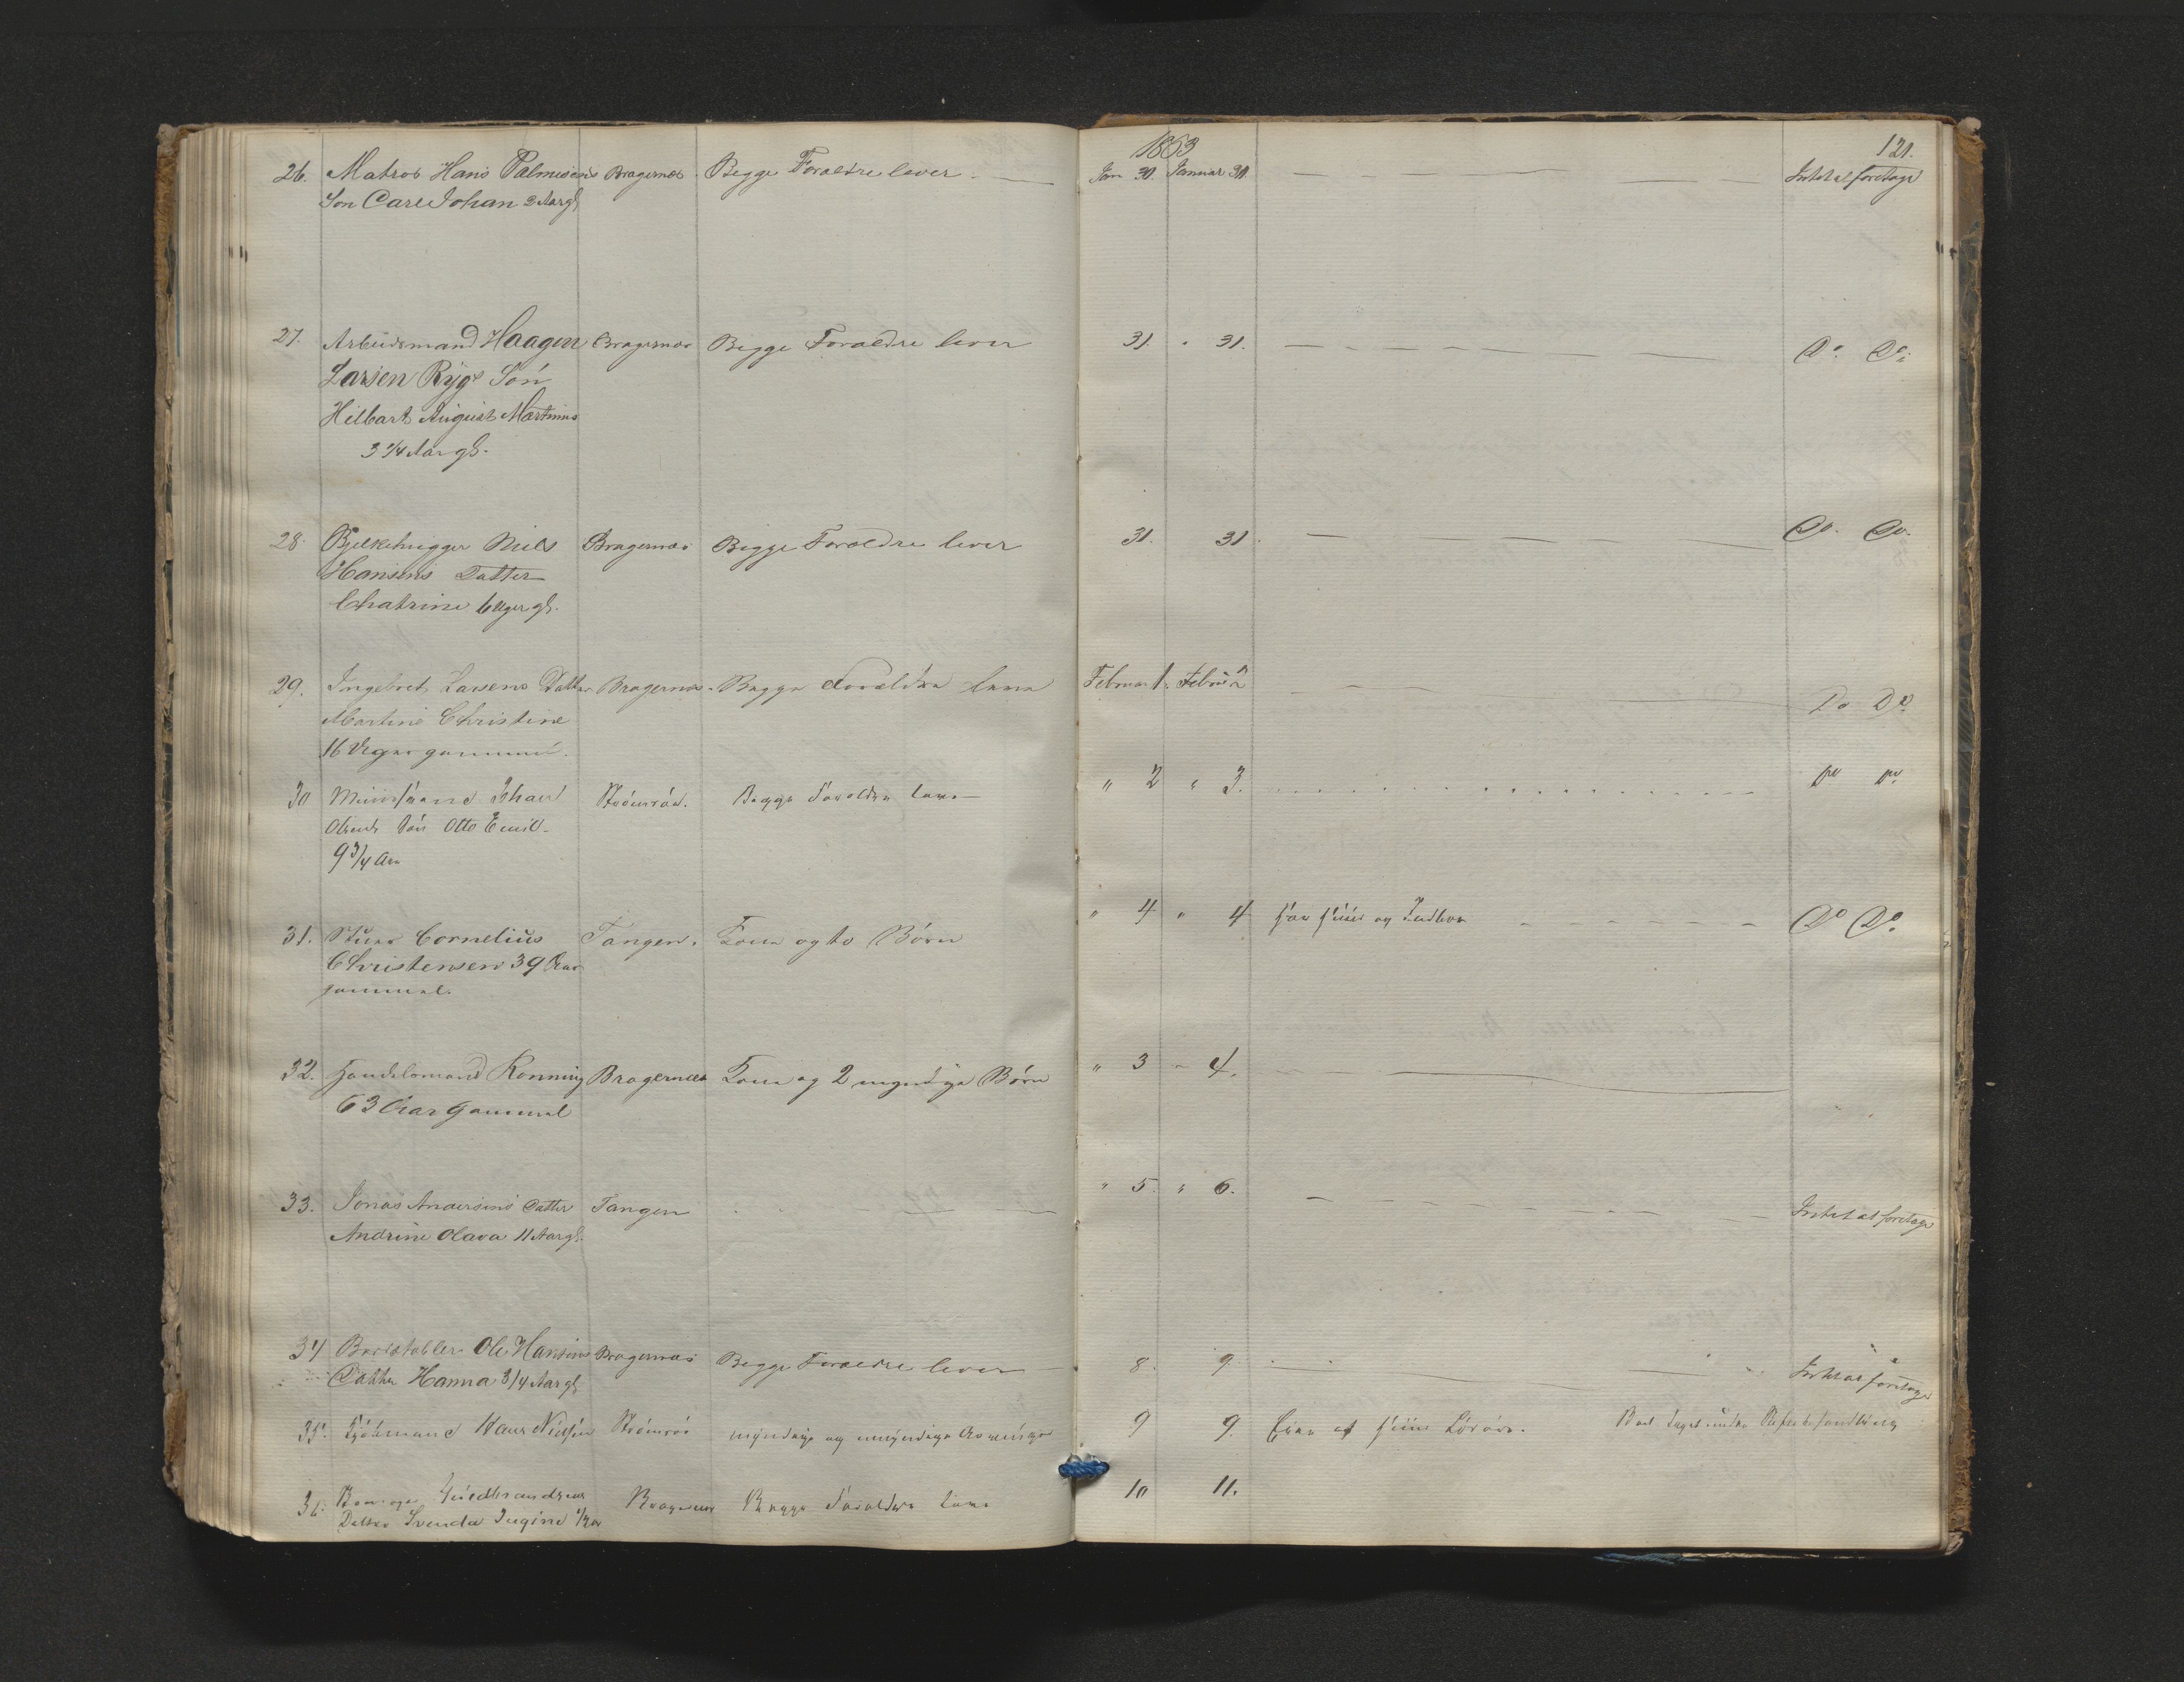 1863
121.
26. Matros Hans Palmesens Bragernæs Begge Forældre lever Jan 30. Januar 31 Intet at foretage
Søn Carl Johan 2 Aar gl
27. Arbeidsmand Haagen Bragernæs Begge Forældre lever 31. " 31. Do. Do.
Larsen Rygs Søn
Hilbart August Martinius
3 1/4 Aar gl.
28. Bjelkehugger Niels Bragernæs Begge Forældre lever 31. 31 Do. Do.
Hansens Datter
Chatrine 6 Uger gl.
29. Ingebret Larsens Datter Bragernæs Begge Forældre leve Februar 1. Februar 2 Do Do.
Martine Christine
16 Uger gammel.
30 Johan Strømsøe. Begge Forældre leve " 2 " 3. Do Do.
Olsens Søn Otto Emil
9 3/4 Aar
31. Cornelius Tangen. Kone og to Børn " 4 " 4 og Indbo Do Do.
Christensen 39 Aar
gammel.
32. Handelsmand Rønning Bragernæs Kone og 2 myndige Børn " 3 " 4.
63 Aar gammel
33. Jonas Andersens Datter Tangen " 5. " 6. Intet at foretage
Andrine Olava 11 Aar gl.
34 Bordstabler Ole Hansens Bragernæs Begge Forældre lever 8. 9. Intet at foretage
Datter Hanna 3/4 Aar gl
35. Hans Nielsen Strømsøe myndige og umyndige Arvinger 9 9. Boet taget under Skiftebehandling
36. Guldbrandsens Bragernæs Begge Forældre leve 10 11.
Datter